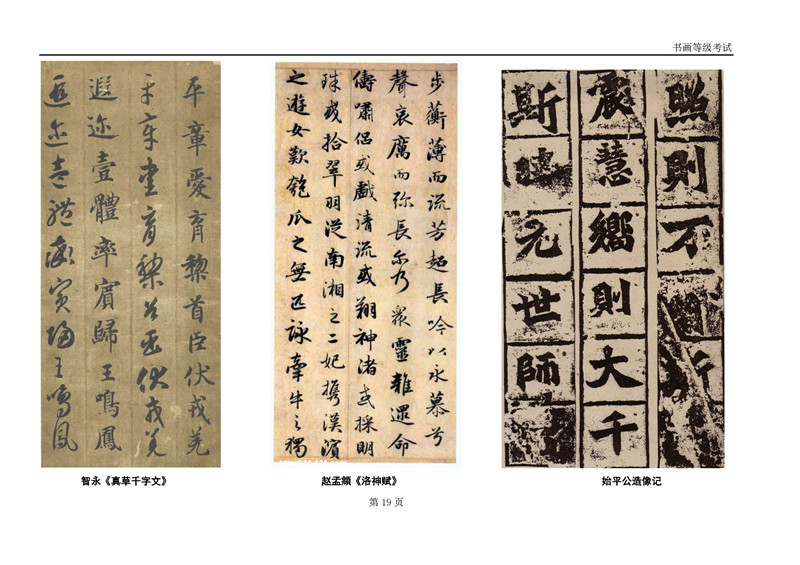 书画等级考试
平章愛育黎首臣伏戎羌
平章愛育黎首臣伏戎羌
遐迩壹體率賓歸王鳴鳳
遐迩壹體率賓歸王鳴鳳
步蘅薄而流芳超長吟以永慕兮
聲哀厲而弥長尔乃衆靈雜遝命
儔嘯侶或戲清流或翔神渚或採明
珠或拾翠羽從南湘之二妃携漢濱
之遊女歎匏瓜之無匹詠牽牛之獨
照則不
震慧嚮則大千
斯
元世師
智永《真草千字文》
赵孟頫《洛神赋》
始平公造像记
第 19 页